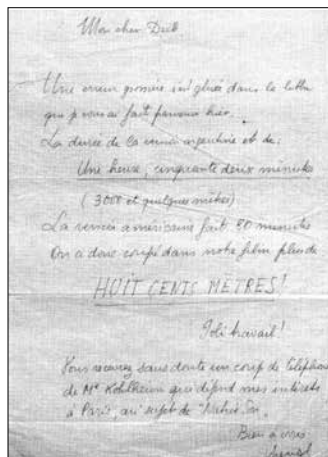 Mon cher
Une erreur s'est glissée dans la lettre
que je vous ai fait parvenir hier.
La durée de la version argentine est de:
Une heure, cinquante deux minutes
(3000 et quelques mètres)
La version américaine fait 80 minutes
On a donc coupé dans notre film plus de
HUIT CENTS MÈTRES!
Joli travail!
Vous recevrez sans doute un coup de téléphone
de Me qui défend mes intérêts
à Paris, au sujet de "Native Son
Bien à vous